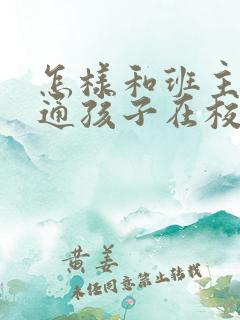 怎样和班主
通孩子在校
黄姜
未经同意禁止转载